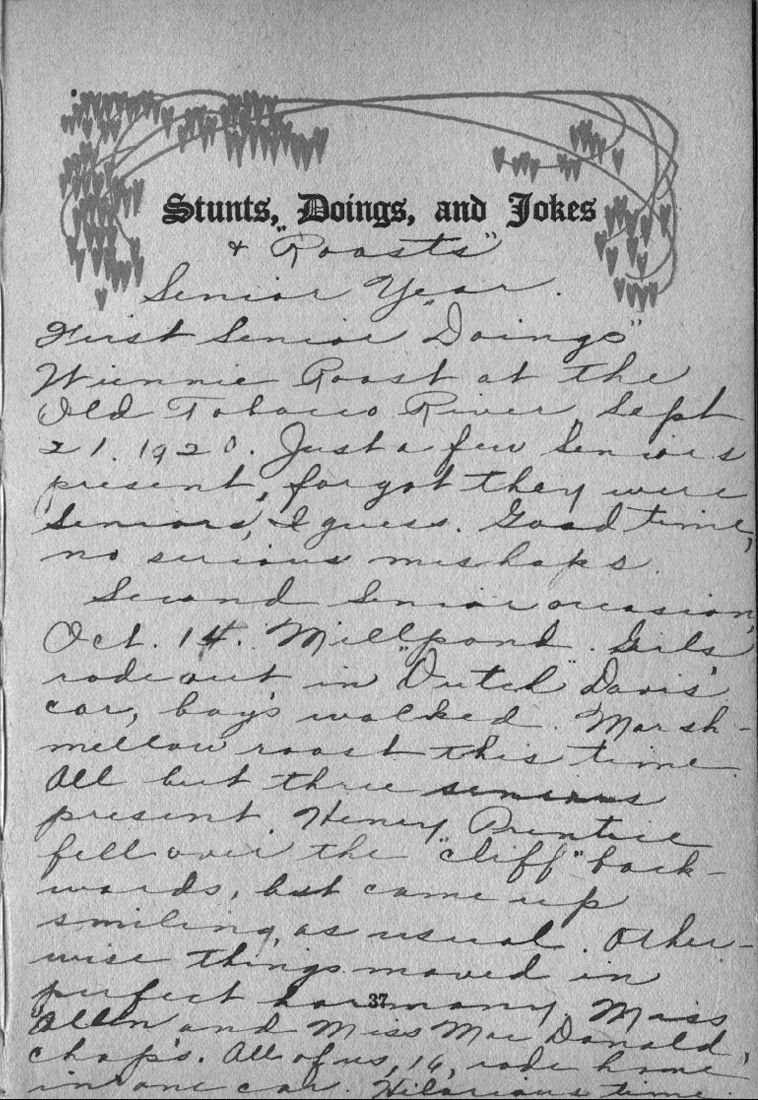 Stunts, Doings, and Jokes
& "Roasts"
Senior Year.
First Senior "Doings"
Wiennie Roast at the
Old Tobacco River, Sept
21. 1920. Just a few Seniors
present, forgot they were
Seniors, I guess. Good time,
no serious mishaps.
Second Senior occasion,
Oct. 14. Millpond. Girls
rode out in "Dutch" Davis'
car, boys walked. Marsh-
mellow roast this time.
All but three seniors
present. Henry Prentice
fell over the "cliff" back-
wards, but came up
smiling, as usual. Other-
wise things moved in
perfect harmony, Miss
37
Allen and Miss Mac Donald,
chap's. All of us, 16, rode home
in one car. Hilarious time.